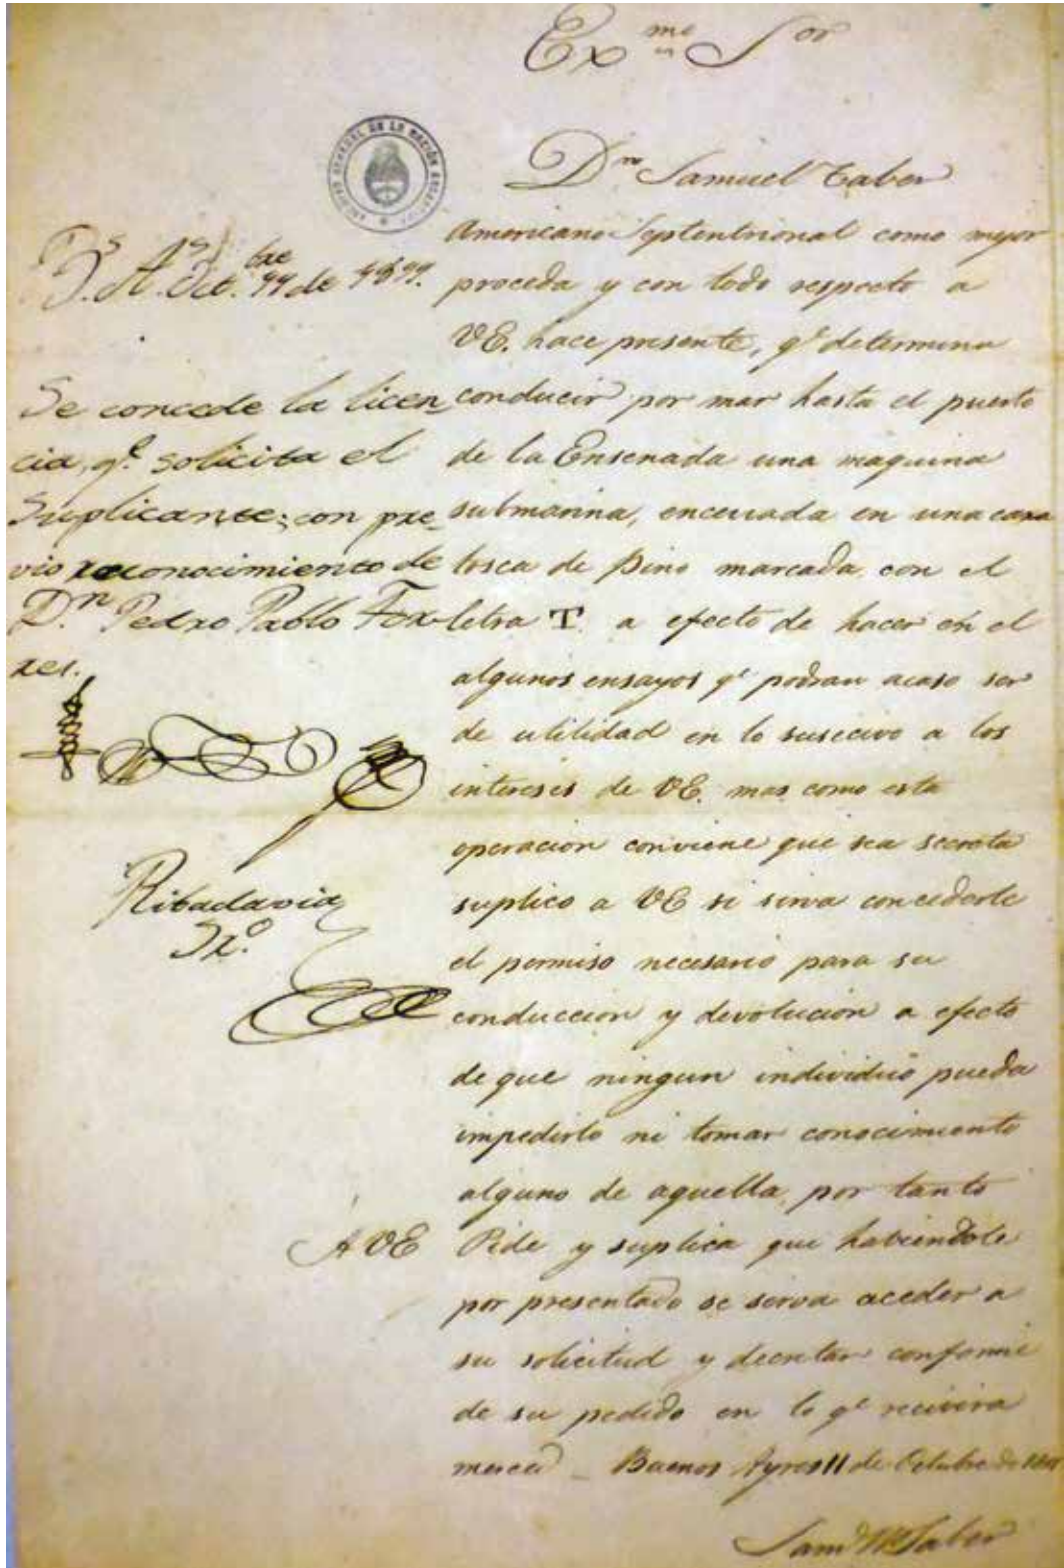 Exmo Sor
ARCHIVO GENERAL DE LA NACIÓN
Dn Samuel Taber
Americano Septentrional como mejor
proceda y con todo respecto a
VE. hace presente, qe determina
conducir por mar hasta el puerto
de la Ensenada una maquina
submarina, encerrada en una caxa
tosca de Pino marcada con el
letra T. a efecto de hacer en el
algunos ensayos qe podran acaso ser
de utilidad en lo susecivo a los
intereses de VE. mas como esta
operacion conviene que sea secreta
suplico a VE si sirva concederle
el permiso necesario para su
conduccion y devolucion a efecto
de que ningun individuo pueda
impedirlo ni tomar conocimiento
alguno de aquella, por tanto
A VE Pide y suplica que habiendole
por presentado se serva aceder a
su solicitud y decretar conforme
de su pedido en lo qe recivira
merced _ Buenos Ayres 11 de Octubre de
Saml Taber
Bs As Octbre 11 de 1811.
Se concede la licen
cia, qe. solicita el
Suplicante; con pre
vio reconocimiento de
Dn. Pedro Pablo Tor
res.
Ribadavia